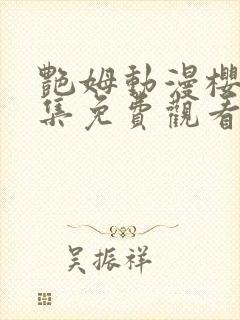 艷姆動漫櫻
集免費觀看
吳振祥